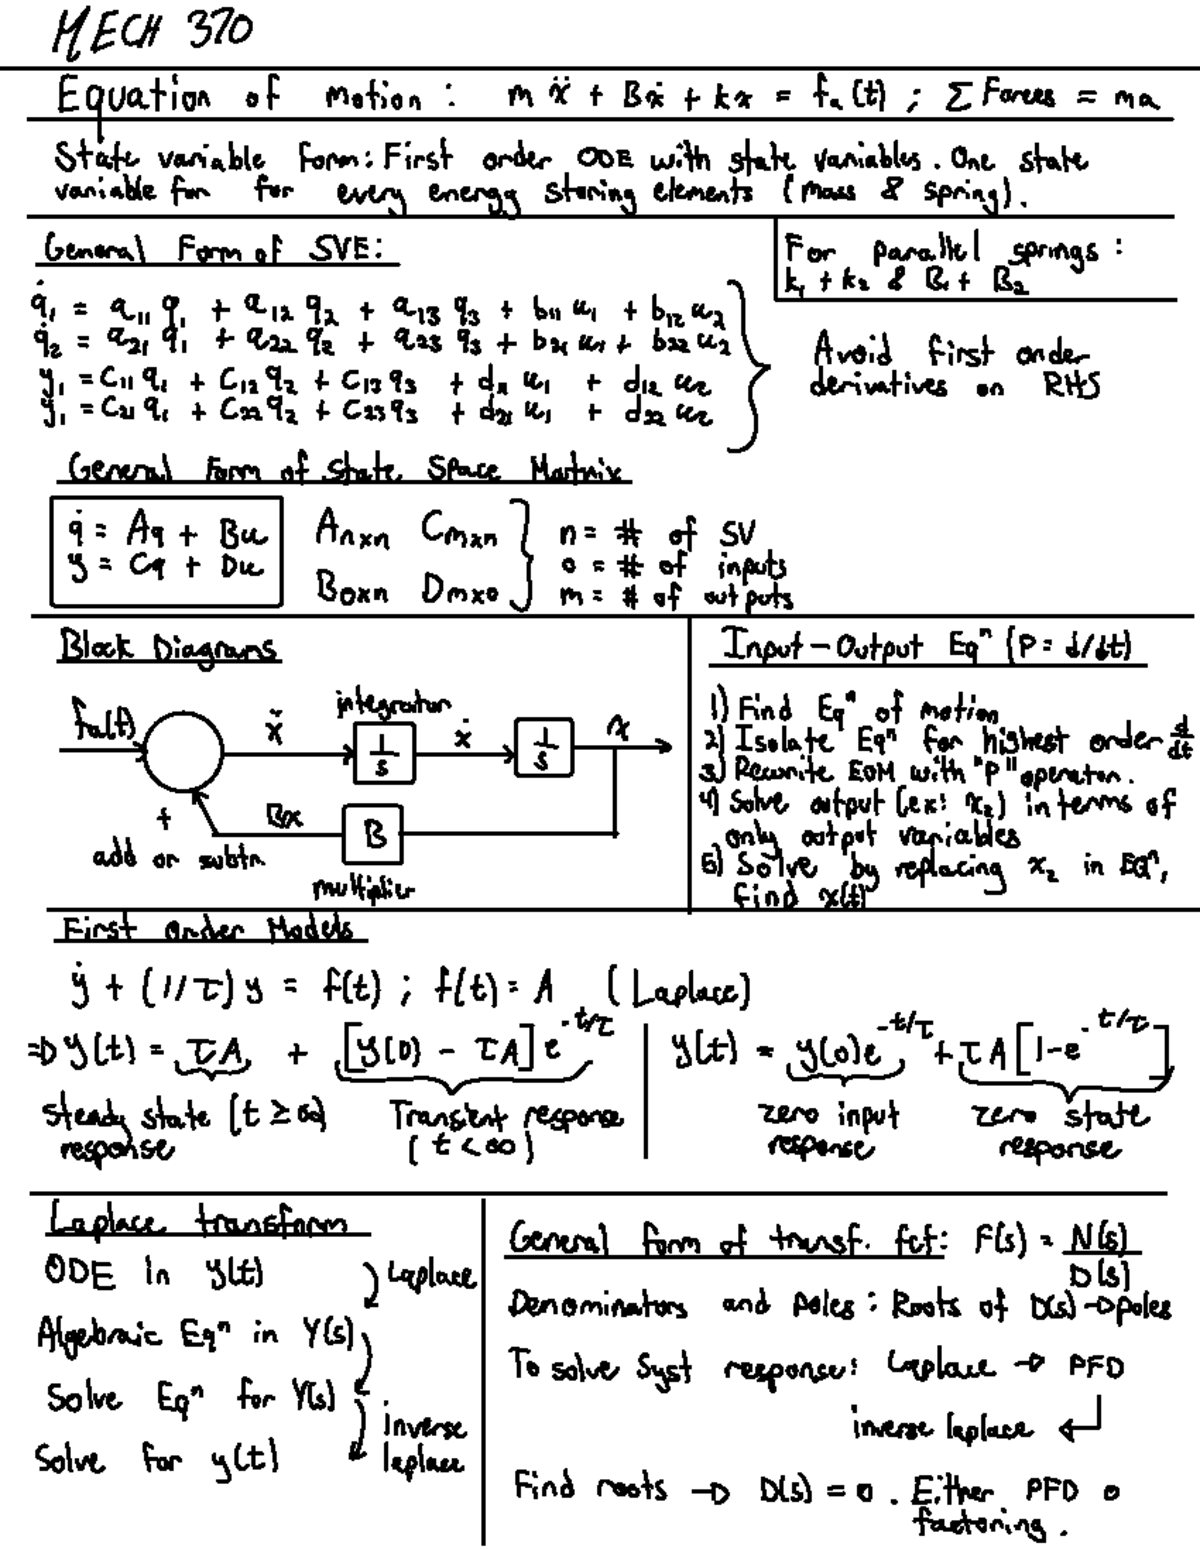 MECH 370
Equation of motion : m ẍ + Bẋ + kx = fa(t) ; Σ Forces = ma
State variable form: First order ODE with state variables. One state
variable for for every energy storing elements (mass & spring).
General Form of SVE:
For parallel springs :
k₁ + k₂ & B₁ + B₂
q̇₁ = a₁₁ q₁ + a₁₂ q₂ + a₁₃ q₃ + b₁₁ u₁ + b₁₂ u₂
q̇₂ = a₂₁ q₁ + a₂₂ q₂ + a₂₃ q₃ + b₂₁ u₁ + b₂₂ u₂
y₁ = C₁₁ q₁ + C₁₂ q₂ + C₁₃ q₃ + d₁₁ u₁ + d₁₂ u₂
ẏ₁ = C₂₁ q₁ + C₂₂ q₂ + C₂₃ q₃ + d₂₁ u₁ + d₂₂ u₂
Avoid first order
derivatives on RHS
General Form of State Space Matrix
q̇ = Aq + Bu
y = Cq + Du
Anxn Cmxn
Boxn Dmxo
n = # of SV
o = # of inputs
m = # of outputs
Block Diagrams
fa(t)
ẍ
integrator
1/s
ẋ
1/s
x
+
Bx
B
add or subtr.
multiplier
Input-Output Eqⁿ (P = d/dt)
1) Find Eqⁿ of motion
2) Isolate Eqⁿ for highest order d/dt
3) Rewrite EOM with "P" operator.
4) Solve output (ex: x₂) in terms of
only output variables
5) Solve by replacing x₂ in EQⁿ,
find x(t)
First order Models
ẏ + (1/τ) y = f(t) ; f(t) = A (Laplace)
⇒ y(t) = τA + [y(0) - τA] e^-t/τ
steady state (t ≥ ∞)
response
Transient response
(t < ∞)
y(t) = y(0)e^-t/τ + τA [1-e^-t/τ]
zero input
response
zero state
response
Laplace transform
ODE in y(t)
Laplace
Algebraic Eqⁿ in Y(s)
Solve Eqⁿ for Y(s)
inverse
laplace
Solve for y(t)
General form of transf. fct: F(s) = N(s)/D(s)
Denominators and poles : Roots of D(s) → poles
To solve Syst response: Laplace → PFD
inverse laplace ←
Find roots → D(s) = 0 . Either PFD o
factoring .